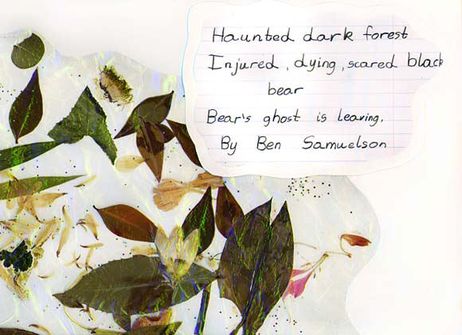 Haunted dark forest
Injured, dying, scared black
bear
Bear's ghost is leaving.
By Ben Samuelson